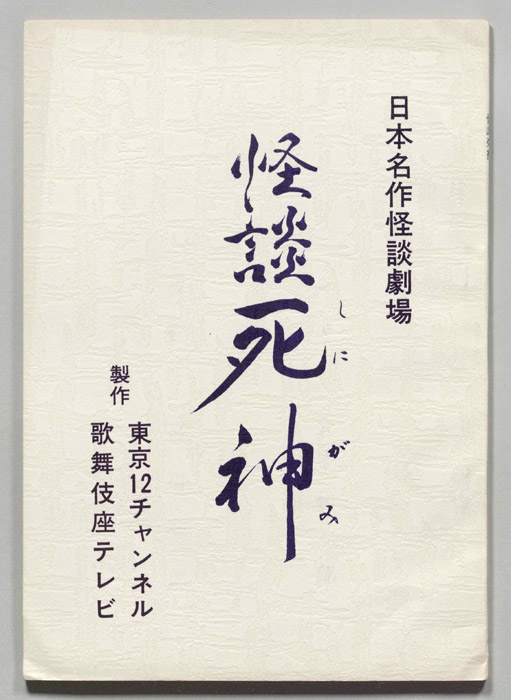 日本名作怪談劇場
怪談死神
しにがみ
製作
東京12チャンネル
歌舞伎座テレビ